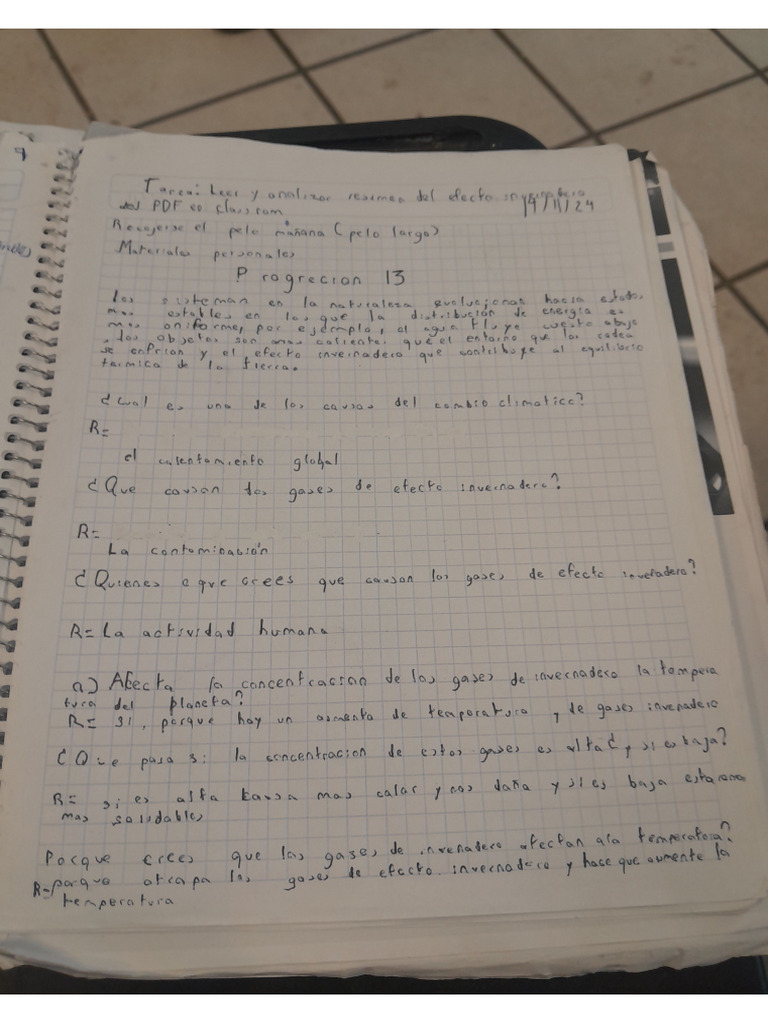 Tarea: Leer y analizar resumen del efecto invernadero
del PDF en classrom 14/11/24
Recojerse el pelo mañana (pelo largo)
Materiales personales
Progrecion 13
Los sisteman en la naturaleza evolucionas hacia estados
mas estables en los que la distribucion de energia es
mas oniforme, por ejemplo, el agua fluye cuesta abajo
, los objetos son mas calientes que el entorno que los rodea
se enfrian y el efecto invernadero que contribuye al equilibrio
termica de la tierra.
¿Cual es una de los causas del cambio climatico?
R=
el calentamiento global
¿Que causan los gases de efecto invernadero?
R=
La contaminación
¿Quienes o que crees que causan los gases de efecto inveradero?
R= La actividad humana
a) Afecta la concentracion de los gases de invernadero la tempera
tura del planeta?
R= si, porque hay un aumento de temperatura y de gases invenadero
¿Que pasa si la concentracion de estos gases es alta? y si es baja?
R= si es alta causa mas calor y nos daña y si es baja estaramos
mas saludables
Porque crees que las gases de invenadero afectan a la temperatura?
R= porque atrapa los gases de efecto invernadero y hace que aumente la
temperatura